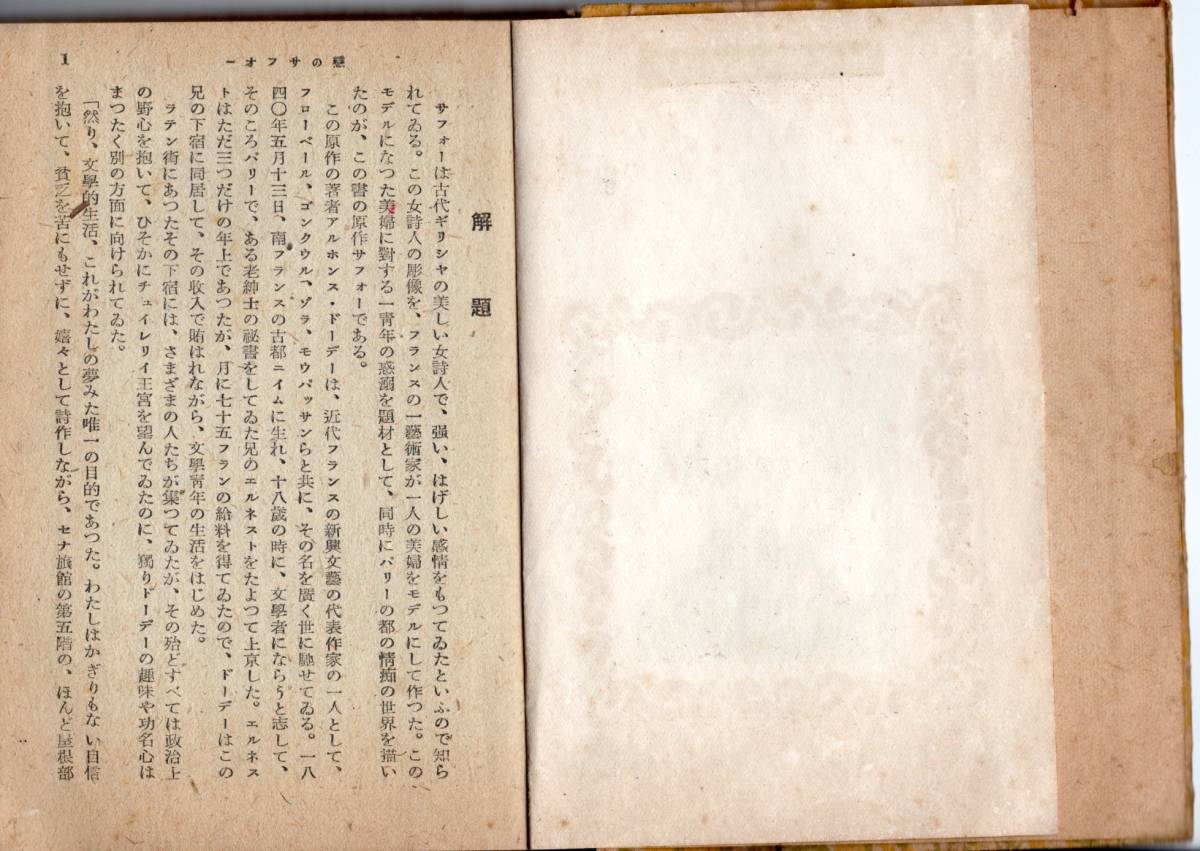 戀のサフオー
1
解題
サフォーは古代ギリシャの美しい女詩人で、强い、はげしい感情をもつてゐたといふので知ら
れてゐる。この女詩人の彫像を、フランスの一藝術家が一人の美婦をモデルにして作つた。この
モデルになつた美婦に對する一靑年の惑溺を題材として、同時にパリーの都の情痴の世界を描い
たのが、この書の原作サフォーである。
この原作の著者アルホンス・ドーデーは、近代フランスの新興文藝の代表作家の一人として、
フローベール、ゴンクウル、ゾラ、モウパッサンらと共に、その名を廣く世に馳せてゐる。一八
四〇年五月十三日、南フランスの古都ニイムに生れ、十八歲の時に、文學者にならうと志して、
そのころパリーで、ある老紳士の祕書をしてゐた兄のエルネストをたよつて上京した。エルネス
トはただ三つだけの年上であつたが、月に七十五フランの給料を得てゐたので、ドーデーはこの
兄の下宿に同居して、その收入で賄はれながら、文學靑年の生活をはじめた。
ラテン街にあつたその下宿には、さまざまの人たちが集つてゐたが、その殆どすべては政治上
の野心を抱いて、ひそかにチュイレリイ王宮を望んでゐたのに、獨りドーデーの趣味や功名心は
まつたく別の方面に向けられてゐた。
「然り、文學的生活、これがわたしの夢みた唯一の目的であつた。わたしはかぎりもない自信
を抱いて、貧乏を苦にもせずに、嬉々として詩作しながら、セナ旅館の第五階の、ほんど屋根部